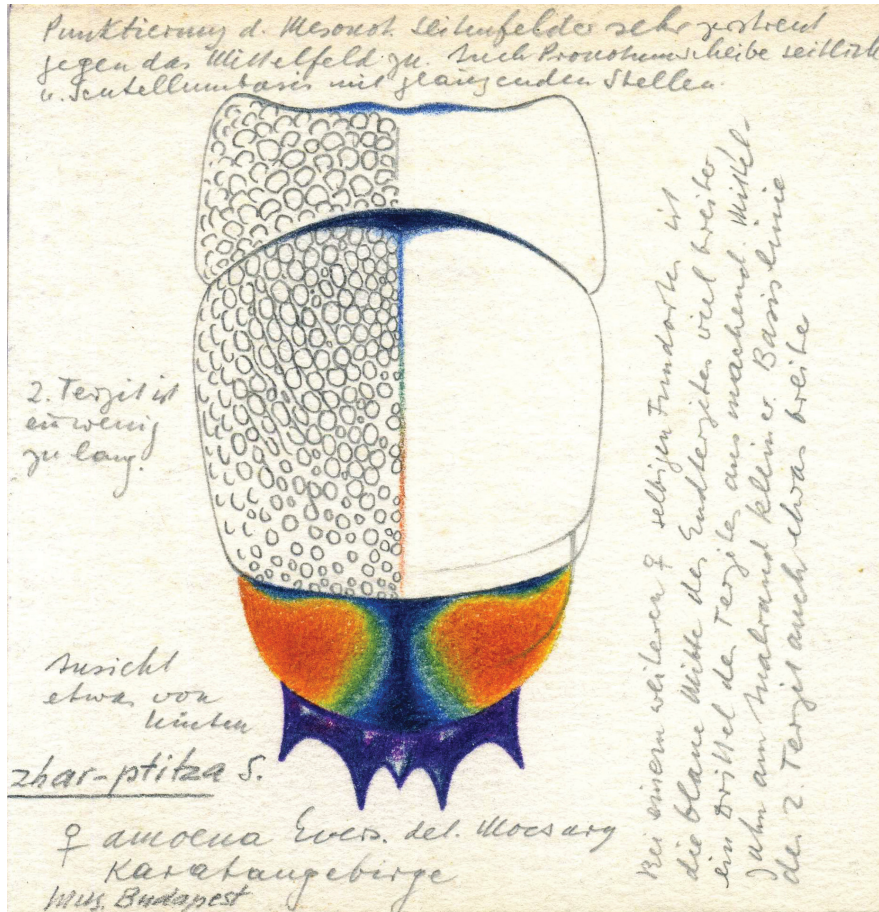 Punktierung d. Mesonot. Seitenfelder sehr zerstreut
gegen das Mittelfeld zu. Auch Pronotumscheibe seitlich
u. Scutellumbasis mit glänzenden Stellen.
2. Tergit ist
ein wenig
zu lang.
Ansicht
etwas von
hinten
zhar-ptitza S.
♀ amoena Evers. det. Mocsary
Karatangebirge
Mus. Budapest
Bei einem weiteren ♀ selbigen Fundortes ist
die blaue Mitte des Endtergites viel breiter
ein Drittel des Tergites ausmachend. Mittel-
zahn am Analrand kleiner. Basislinie
des 2. Tergit auch etwas breiter